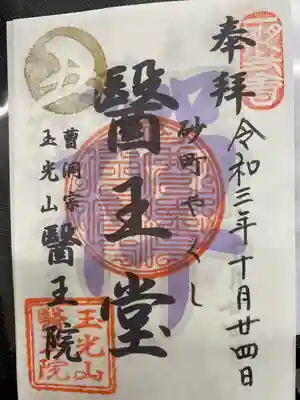 奉拝
令和三年十月廿四日
砂町やくし
醫王堂
曹洞宗
玉光山醫王院
禅
玉光山
醫王院